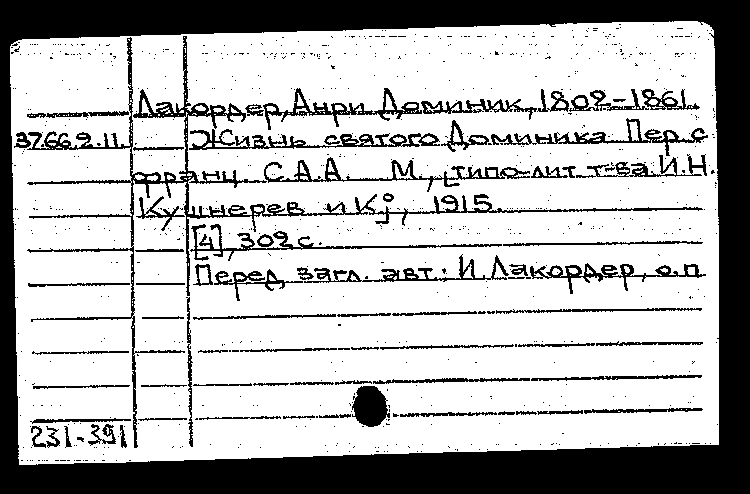 Лакордер, Анри Доминик, 1802-1861.
37.66.2.11. Жизнь святого Доминика Пер. с
франц. С.А.А. М., [типо-лит. т-ва И.Н.
Кушнерев и К°], 1915.
[4], 302 с.
Перед загл. авт.: И. Лакордер, о.п
231-391